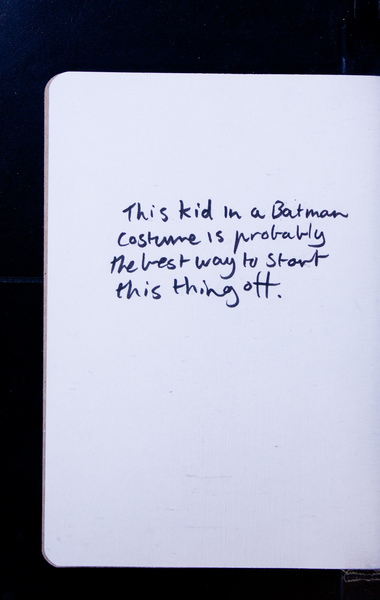 This kid in a Batman
costume is probably
the best way to start
this thing off.